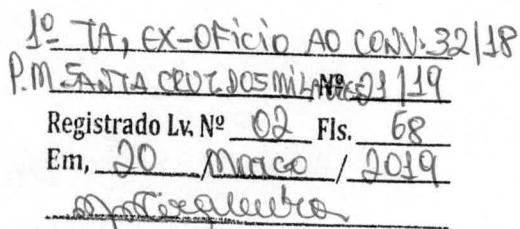 1º TA, EX-OFÍCIO AO CONV. 32/18
P.M SANTA CRUZ DOS MILAGRES Nº 21/19
Registrado Lv. Nº 02 Fls. 68
Em, 20 / Março / 2019